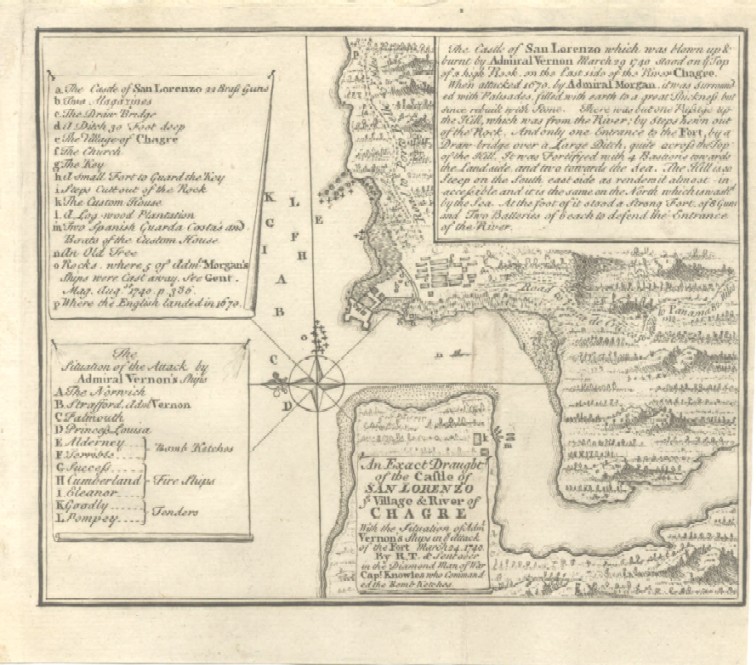 a. The Castle of San Lorenzo 22 Brass Guns
b Two Magazines
c The Draw Bridge
d A Ditch 30 Foot deep
e The Village of Chagre
f The Church
g The Key
h A small Fort to Guard the Key
i Steps Cut out of the Rock
k The Custom House
l A Log-wood Plantation
m Two Spanish Guarda Costa's and
Boats of the Custom House
n An Old Tree
o Rocks where 5 of Adml. Morgan's
Ships were Cast away. See Gent.
Mag. Augst. 1740. p. 386
p Where the English landed in 1670.
The Castle of San Lorenzo which was blown up &
burnt by Admiral Vernon March 29 1740 stood on ye Top
of a high Rock, on the East side of the River Chagre.
When attacked 1670, by Admiral Morgan, it was surround
ed with Palisades, filled with earth to a great Thickness but
since rebuilt with Stone. There was but one Passage up
the Hill, which was from the River; by Steps hewn out
of the Rock. And only one Entrance to the Fort, by a
Draw-bridge over a Large Ditch, quite across the Top
of the Hill. It was Fortifyed with 4 Bastions towards
the Land side, and two towards the Sea. The Hill is so
Steep on the South east side as renders it almost in
accessible and it is the same on the North which is washed
by the Sea. At the foot of it stood a Strong Fort, of 8 Guns
and Two Batteries of 6 each to defend the Entrance
of the River.
P
K
L
E
G
F
I
H
A
B
C
D
o
Road
to Panama
The
Situation of the Attack by
Admiral Vernon's Ships
A The Norwich
B Strafford Adml Vernon
C Falmouth
D Princess Louisa
E Alderney
F Terrible
Bomb Ketches
G Success
H Cumberland
I Eleanor
Fire Ships
K Goodly
L Pompey
Tenders
k
An Exact Draught
of the Castle of
SAN LORENZO
ye Village & River of
CHAGRE
With the Situation of Adm.
Vernon's Ships in ye Attack
of the Fort March 24. 1740.
By R.T. & Sent over
in the Diamond Man of War
Capt. Knowles who Command
ed the Bomb Ketches